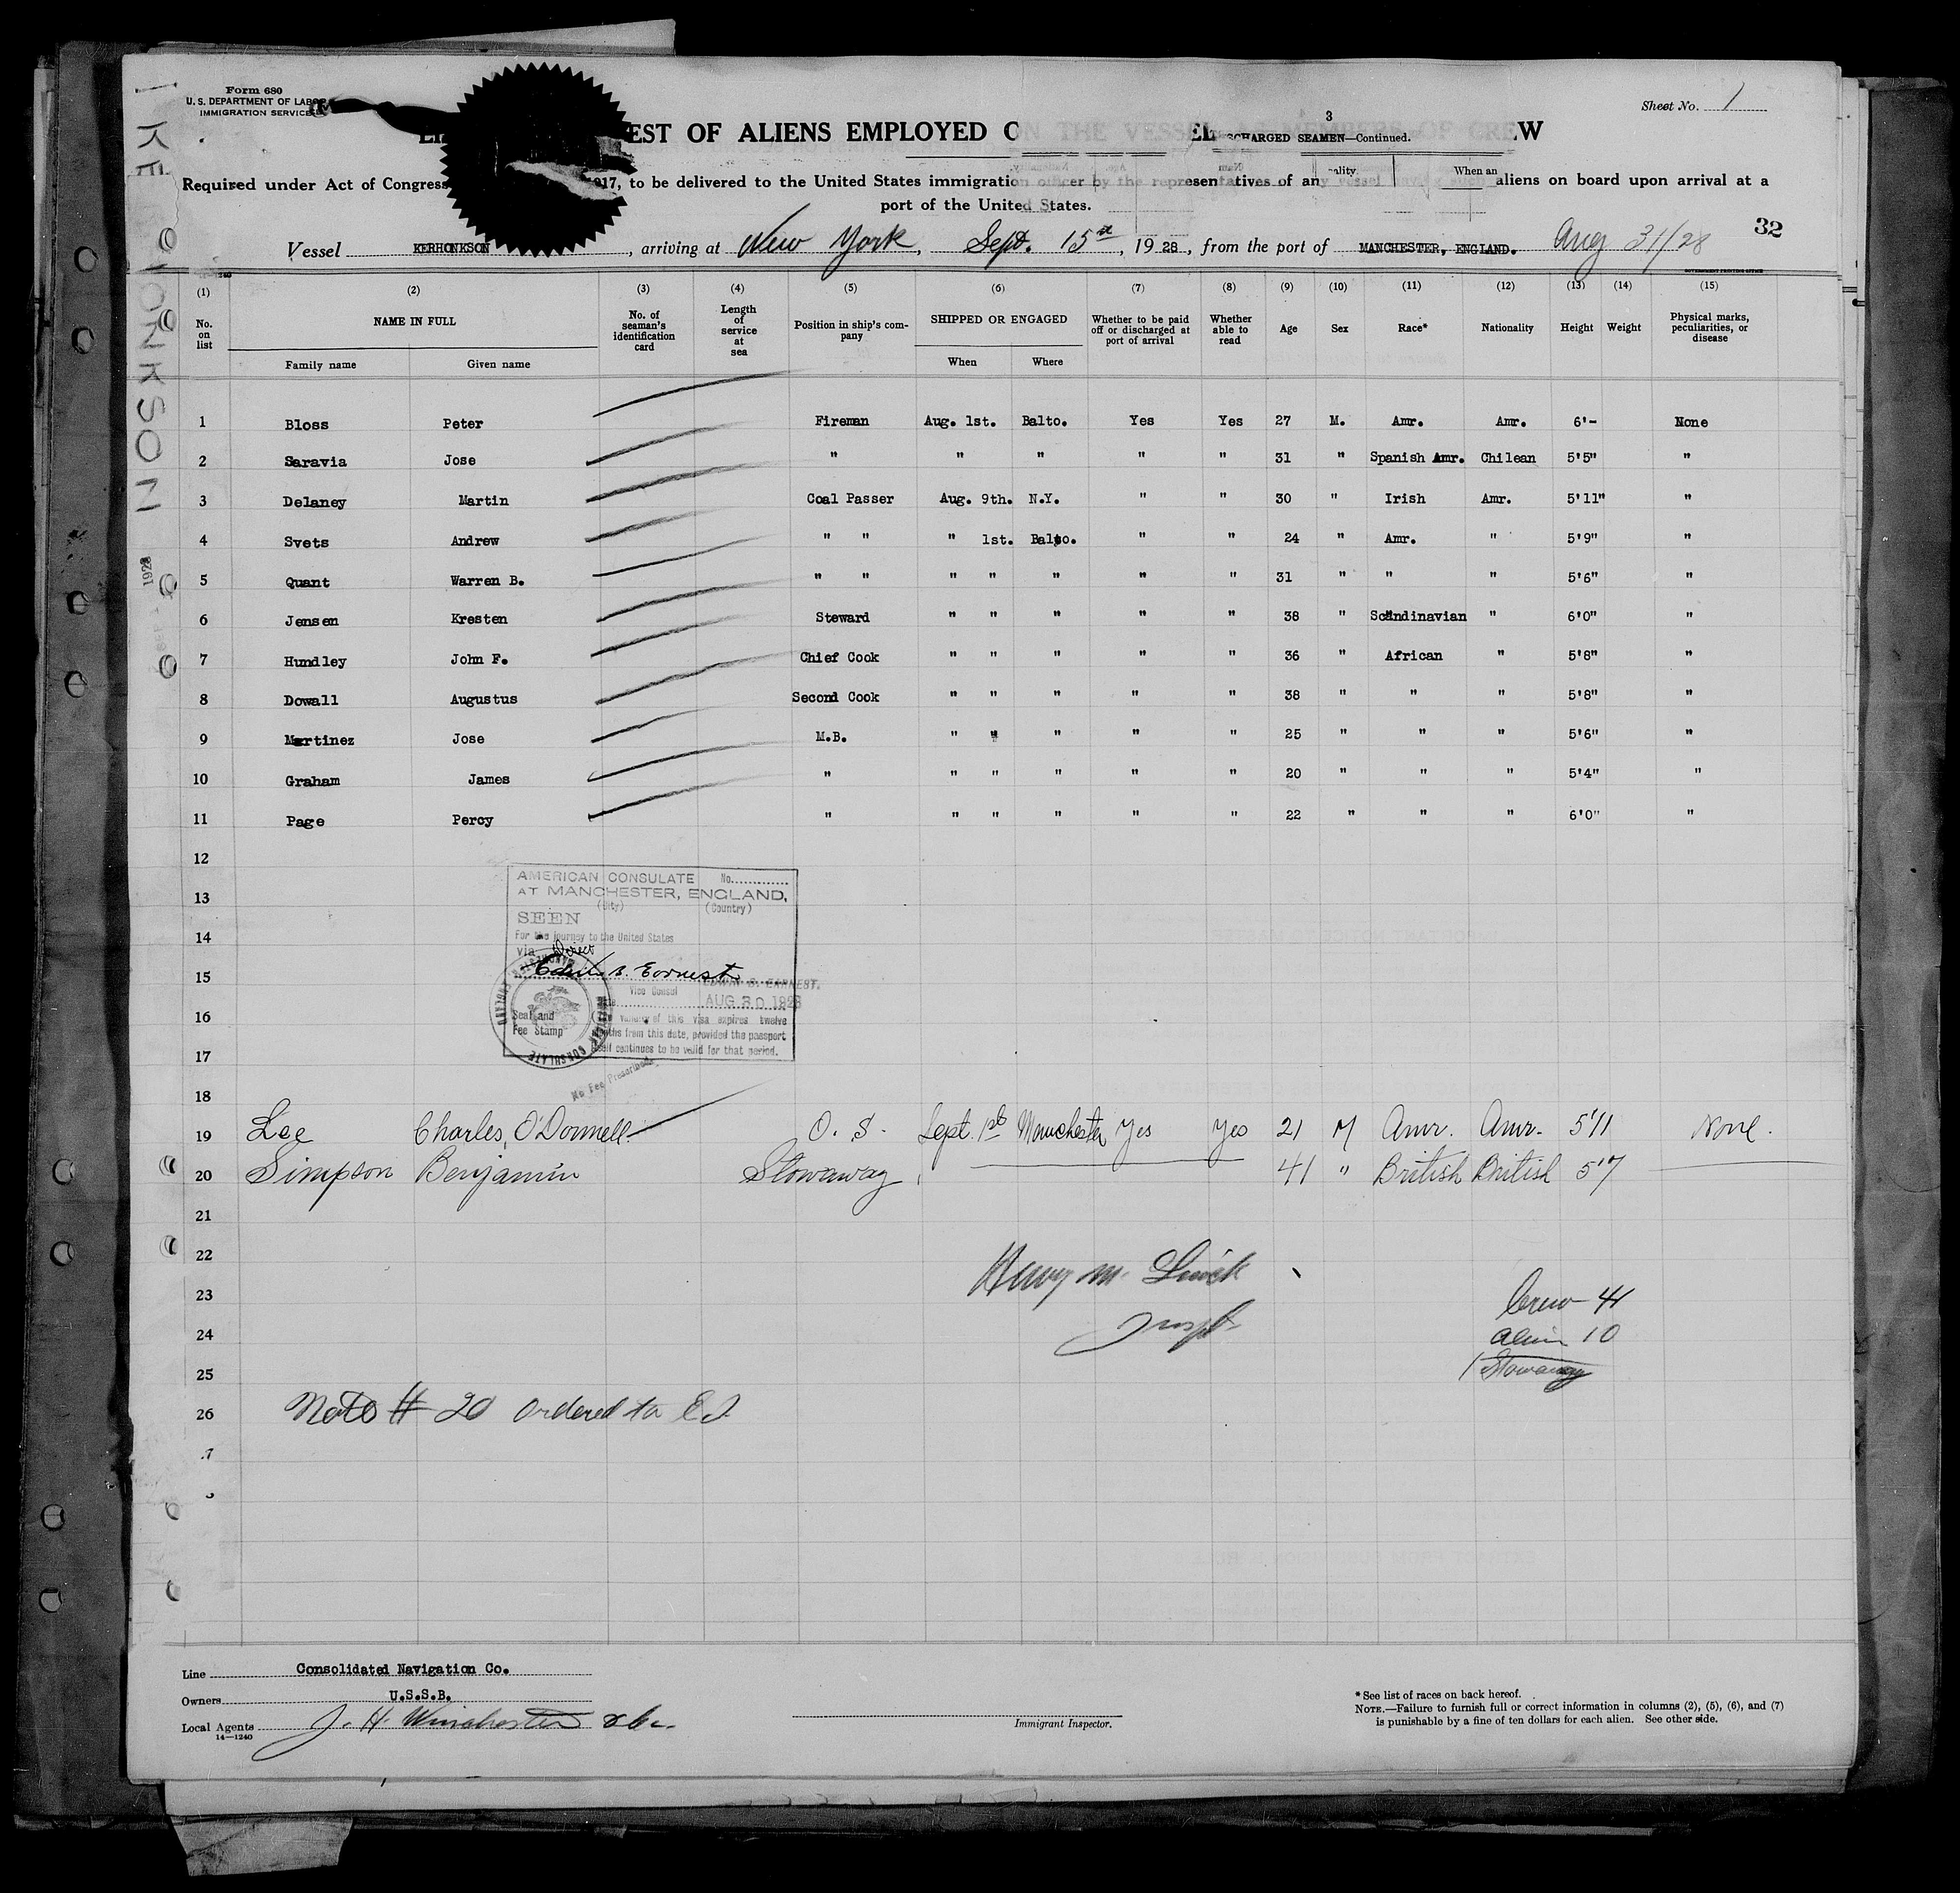 Form 680
U. S. DEPARTMENT OF LABOR
IMMIGRATION SERVICE
Sheet No. 1
3
EST OF ALIENS EMPLOYED ON THE VESSEL MEMBERS OF CREW
CHARGED SEAMEN—Continued.
Required under Act of Congress 1917, to be delivered to the United States immigration officer by the representatives of any vessel having such aliens on board upon arrival at a
port of the United States.
32
Vessel KERHONKSON, arriving at New York, Sept. 15th, 1928, from the port of MANCHESTER, ENGLAND. Aug 31/28
KERHONKSON
(1) (2) (3) (4) (5) (6) (7) (8) (9) (10) (11) (12) (13) (14) (15)
No. on list
NAME IN FULL
Family name Given name
No. of seaman's identification card
Length of service at sea
Position in ship's company
SHIPPED OR ENGAGED
When Where
Whether to be paid off or discharged at port of arrival
Whether able to read
Age Sex Race* Nationality Height Weight
Physical marks, peculiarities, or disease
1 Bloss Peter Fireman Aug. 1st. Balto. Yes Yes 27 M. Amr. Amr. 6'- None
2 Saravia Jose " " " " " 31 " Spanish Amr. Chilean 5'5" "
3 Delaney Martin Coal Passer Aug. 9th. N.Y. " " 30 " Irish Amr. 5'11" "
4 Svets Andrew " " " 1st. Balto. " " 24 " Amr. " 5'9" "
5 Quant Warren B. " " " " " " " 31 " " " 5'6" "
6 Jensen Kresten Steward " " " " " 38 " Scandinavian " 6'0" "
7 Hundley John F. Chief Cook " " " " " 36 " African " 5'8" "
8 Dowall Augustus Second Cook " " " " " 38 " " " 5'8" "
9 Martinez Jose M.B. " " " " " 25 " " " 5'6" "
10 Graham James " " " " " " 20 " " " 5'4" "
11 Page Percy " " " " " " 22 " " " 6'0" "
12
13
14
15
16
17
18
AMERICAN CONSULATE No.
AT MANCHESTER, ENGLAND,
(City) (Country)
SEEN
For the journey to the United States
via Direct
EDWIN B. EARNEST.
Vice Consul
AUG 30 1928
Seal and Fee Stamp
The validity of this visa expires twelve
months from this date, provided the passport
itself continues to be valid for that period.
No Fee Prescribed
19 Lee Charles, O'Donnell O. S. Sept. 1st Manchester Yes Yes 21 M Amr. Amr. 5'11 None.
20 Simpson Benjamin Stowaway 41 " British British 5'7
21
22
23
24
25
26
Henry M.
Insp
Crew 41
alien 10
1 Stowaway
Note # 20 ordered to E I
Line Consolidated Navigation Co.
Owners U.S.S.B.
Local Agents J. H. Winchester & Co.
14—1240
Immigrant Inspector.
* See list of races on back hereof.
NOTE.—Failure to furnish full or correct information in columns (2), (5), (6), and (7)
is punishable by a fine of ten dollars for each alien. See other side.